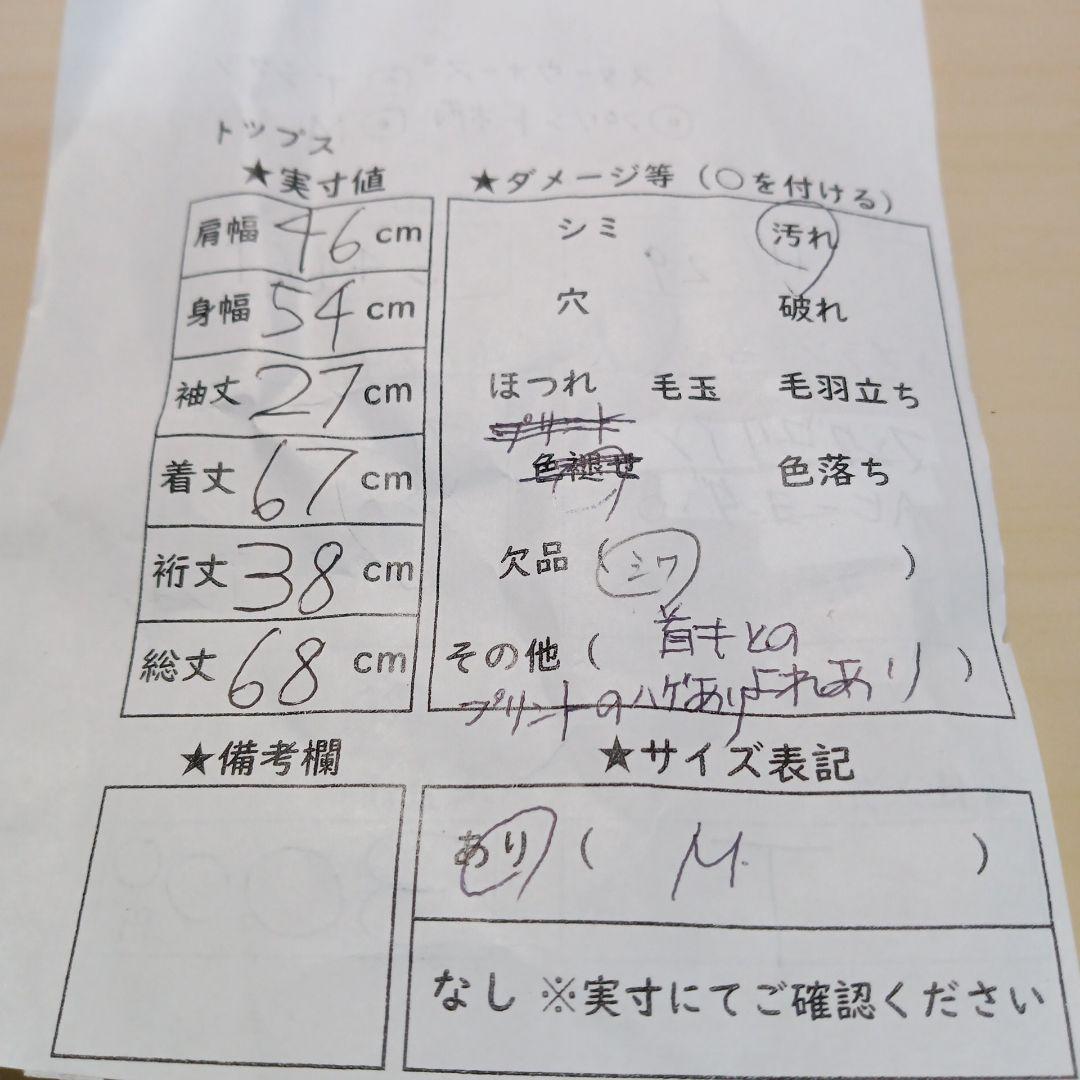 トップス
★実寸値
肩幅 46 cm
身幅 54 cm
袖丈 27 cm
着丈 67 cm
裄丈 38 cm
総丈 68 cm
★ダメージ等（○を付ける）
シミ 汚れ
穴 破れ
ほつれ 毛玉 毛羽立ち
プリント
色褪せ 色落ち
欠品（シワ ）
その他（ 首もとの
よれあり ）
プリントのハゲあり
★備考欄
★サイズ表記
あり（ M. ）
なし ※実寸にてご確認ください